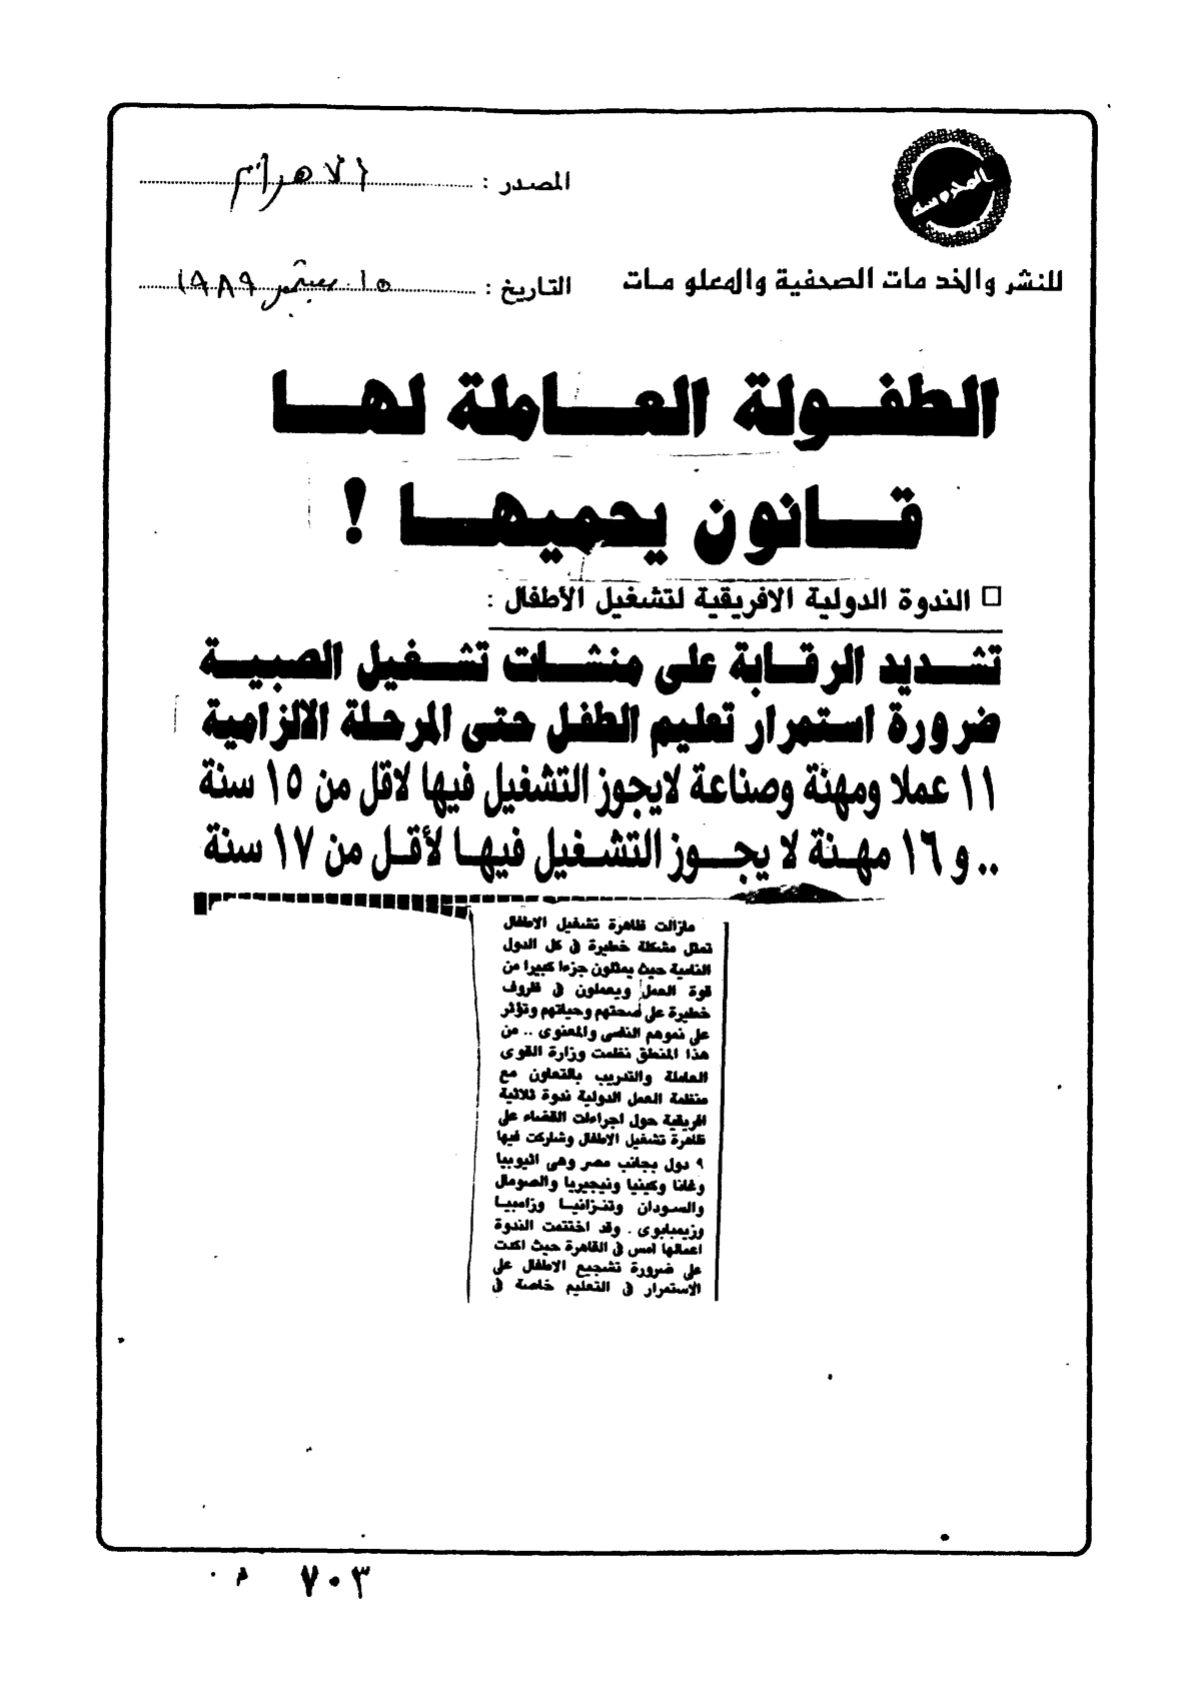 المحروسة
المصدر : الاهرام
للنشر والخدمات الصحفية والمعلومات
التاريخ : ١٥ سبتمبر ١٩٨٩
الطفولة العاملة لها
قانون يحميها !
□ الندوة الدولية الافريقية لتشغيل الأطفال :
تشديد الرقابة على منشات تشغيل الصبية
ضرورة استمرار تعليم الطفل حتى المرحلة الالزامية
١١ عملا ومهنة وصناعة لايجوز التشغيل فيها لاقل من ١٥ سنة
.. و ١٦ مهنة لا يجوز التشغيل فيها لأقل من ١٧ سنة
مازالت ظاهرة تشغيل الاطفال
تمثل مشكلة خطيرة فى كل الدول
النامية حيث يمثلون جزءا كبيرا من
قوة العمل ويعملون فى ظروف
خطيرة على صحتهم وحياتهم وتؤثر
على نموهم النفسى والمعنوى .. من
هذا المنطق نظمت وزارة القوى
العاملة والتدريب بالتعاون مع
منظمة العمل الدولية ندوة ثلاثية
افريقية حول اجراءات القضاء على
ظاهرة تشغيل الاطفال وشاركت فيها
٩ دول بجانب مصر وهى اثيوبيا
وغانا وكينيا ونيجيريا والصومال
والسودان وتنزانيا وزامبيا
وزيمبابوى . وقد اختتمت الندوة
اعمالها امس فى القاهرة حيث اكدت
على ضرورة تشجيع الاطفال على
الاستمرار فى التعليم خاصة فى
٧٠٣